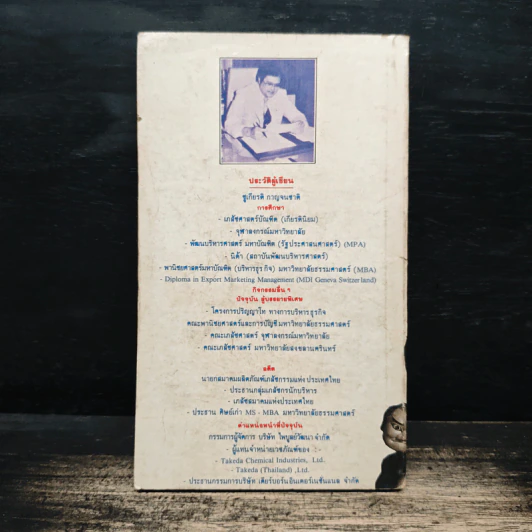 ประวัติผู้เขียน
ชูเกียรติ กาญจนชาติ
การศึกษา
- เภสัชศาสตร์บัณฑิต (เกียรตินิยม)
- จุฬาลงกรณ์มหาวิทยาลัย
- พัฒนบริหารศาสตร์ มหาบัณฑิต (รัฐประศาสนศาสตร์) (MPA)
- นิด้า (สถาบันพัฒนบริหารศาสตร์)
- พานิชยศาสตร์มหาบัณฑิต (บริหารธุรกิจ) มหาวิทยาลัยธรรมศาสตร์ (MBA)
- Diploma in Export Marketing Management (MDI Geneva Switzerland)
กิจกรรมอื่น ๆ
ปัจจุบัน ผู้บรรยายพิเศษ
- โครงการปริญญาโท ทางการบริหารธุรกิจ
คณะพานิชยศาสตร์และการบัญชีมหาวิทยาลัยธรรมศาสตร์
- คณะเภสัชศาสตร์ จุฬาลงกรณ์มหาวิทยาลัย
- คณะเภสัชศาสตร์ มหาวิทยาลัยสงขลานครินทร์
อดีต
นายกสมาคมผลิตภัณฑ์เภสัชกรรมแห่งประเทศไทย
- ประธานกลุ่มเภสัชกรนักบริหาร
- เภสัชสมาคมแห่งประเทศไทย
- ประธาน ศิษย์เก่า MS - MBA มหาวิทยาลัยธรรมศาสตร์
ตำแหน่งหน้าที่ปัจจุบัน
กรรมการผู้จัดการ บริษัท ไพบูลย์วัฒนา จำกัด
- ผู้แทนจำหน่ายเวชภัณฑ์ของ :-
- Takeda Chemical Industries, Ltd.
- Takeda (Thailand) ,Ltd.
- ประธานกรรมการบริษัท เดียร์บอร์นอินเตอร์เนชั่นแนล จำกัด